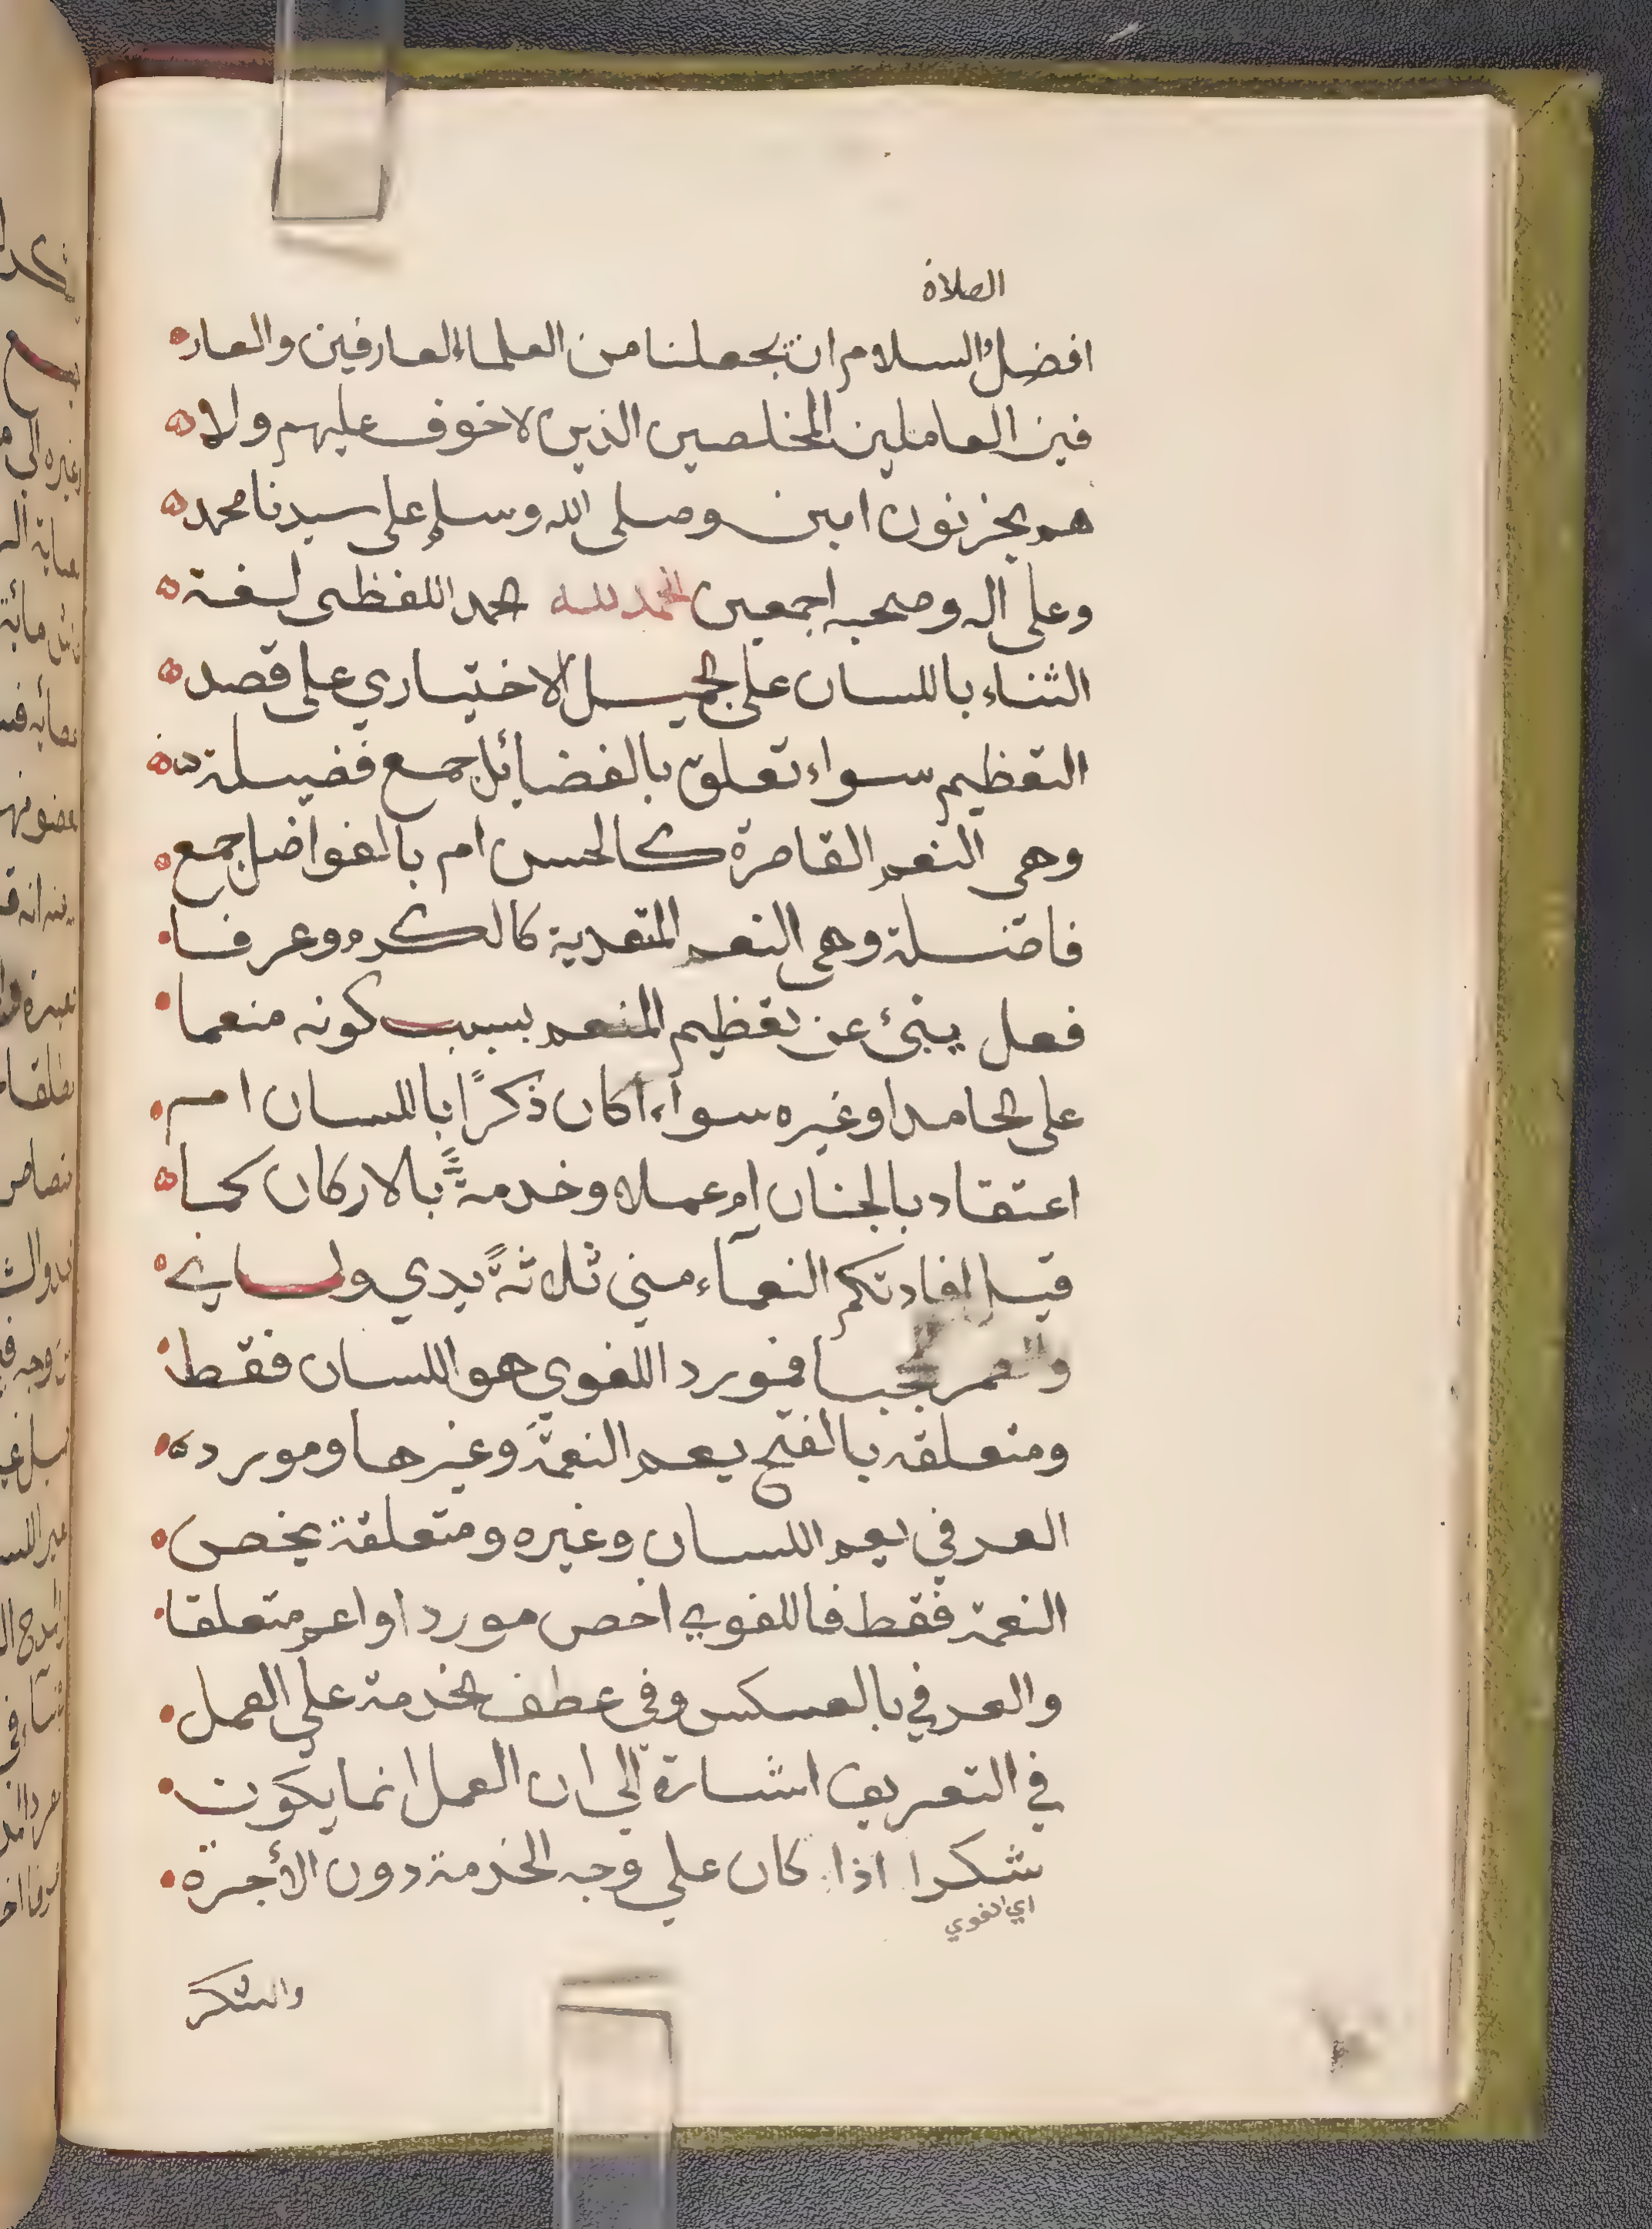 الصلاة
افضل والسلام ان يجعلنا من العلماء العارفين والعار
فين العاملين المخلصين الذين لا خوف عليهم ولا
هم يحزنون امين وصلى الله وسلم على سيدنا محمد
وعلى اله وصحبه اجمعين الحمد لله الحمد اللفظى لغة
الثناء باللسان على الجميل الاختياري على قصد
التعظيم سواء تعلق بالفضائل جمع فضيلة
وهى النعم القاصرة كالحسن ام بالفواضل جمع
فاضلة وهى النعم المتعدية كالكرم وعرفا
فعل ينبئ عن تعظيم المنعم بسبب كونه منعما
على الحامد او غيره سواء اكان ذكرًا باللسان ام
اعتقاد بالجنان ام عملا وخدمةً بالاركان كما
قيل افادتكم النعمآء مني ثلاثةً يدي ولساني
فمورد اللغوي هو اللسان فقط
ومتعلقه بالفتح يعم النعمة وغيرها ومورد
العرفي يعم اللسان وغيره ومتعلقة يخص
النعمة فقط فاللغوي اخص موردا واعم متعلقا
والعرفي بالعكس وفى عطف الخدمة على العمل
في التعريف اشارة الي ان العمل انما يكون
شكرا اذا كان علي وجه الخدمة دون الأجرة
اي الغوي
والشكر